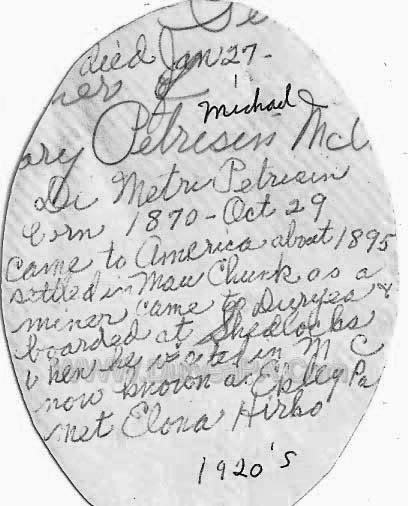 Ge
died Jan 27-
ner of
Michael
ary Petrisin McC
Di Metri Petrisin
Born 1870-Oct 29
Came to America about 1895
settled in Mau Chunk as a
miner came to Duryea &
boarded at Shedlocks
when he visited in M C
now known as Espley Pa
met Elona Hirko
1920's